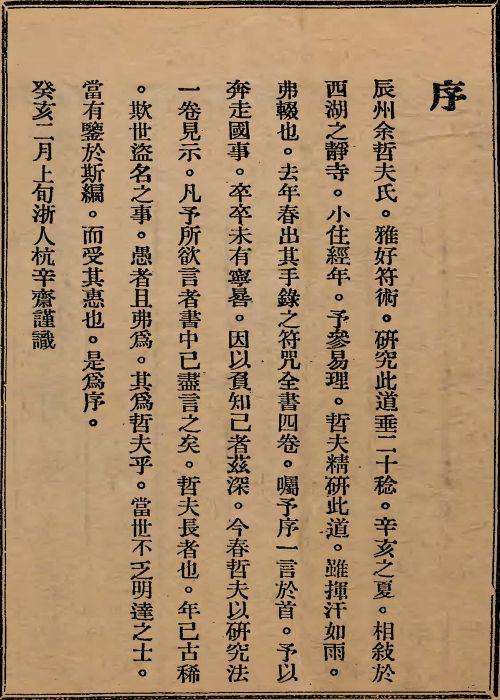 序
辰州余哲夫氏。雅好符術。研究此道垂二十稔。辛亥之夏。相敍於
西湖之靜寺。小住經年。予參易理。哲夫精研此道。雖揮汗如雨。
弗輟也。去年春出其手錄之符咒全書四卷。囑予序一言於首。予以
奔走國事。卒卒未有寧晷。因以負知己者茲深。今春哲夫以研究法
一卷見示。凡予所欲言者書中已盡言之矣。哲夫長者也。年已古稀
。欺世盜名之事。愚者且弗爲。其爲哲夫乎。當世不乏明達之士。
當有鑒於斯編。而受其惠也。是爲序。
癸亥二月上旬浙人杭辛齋謹識